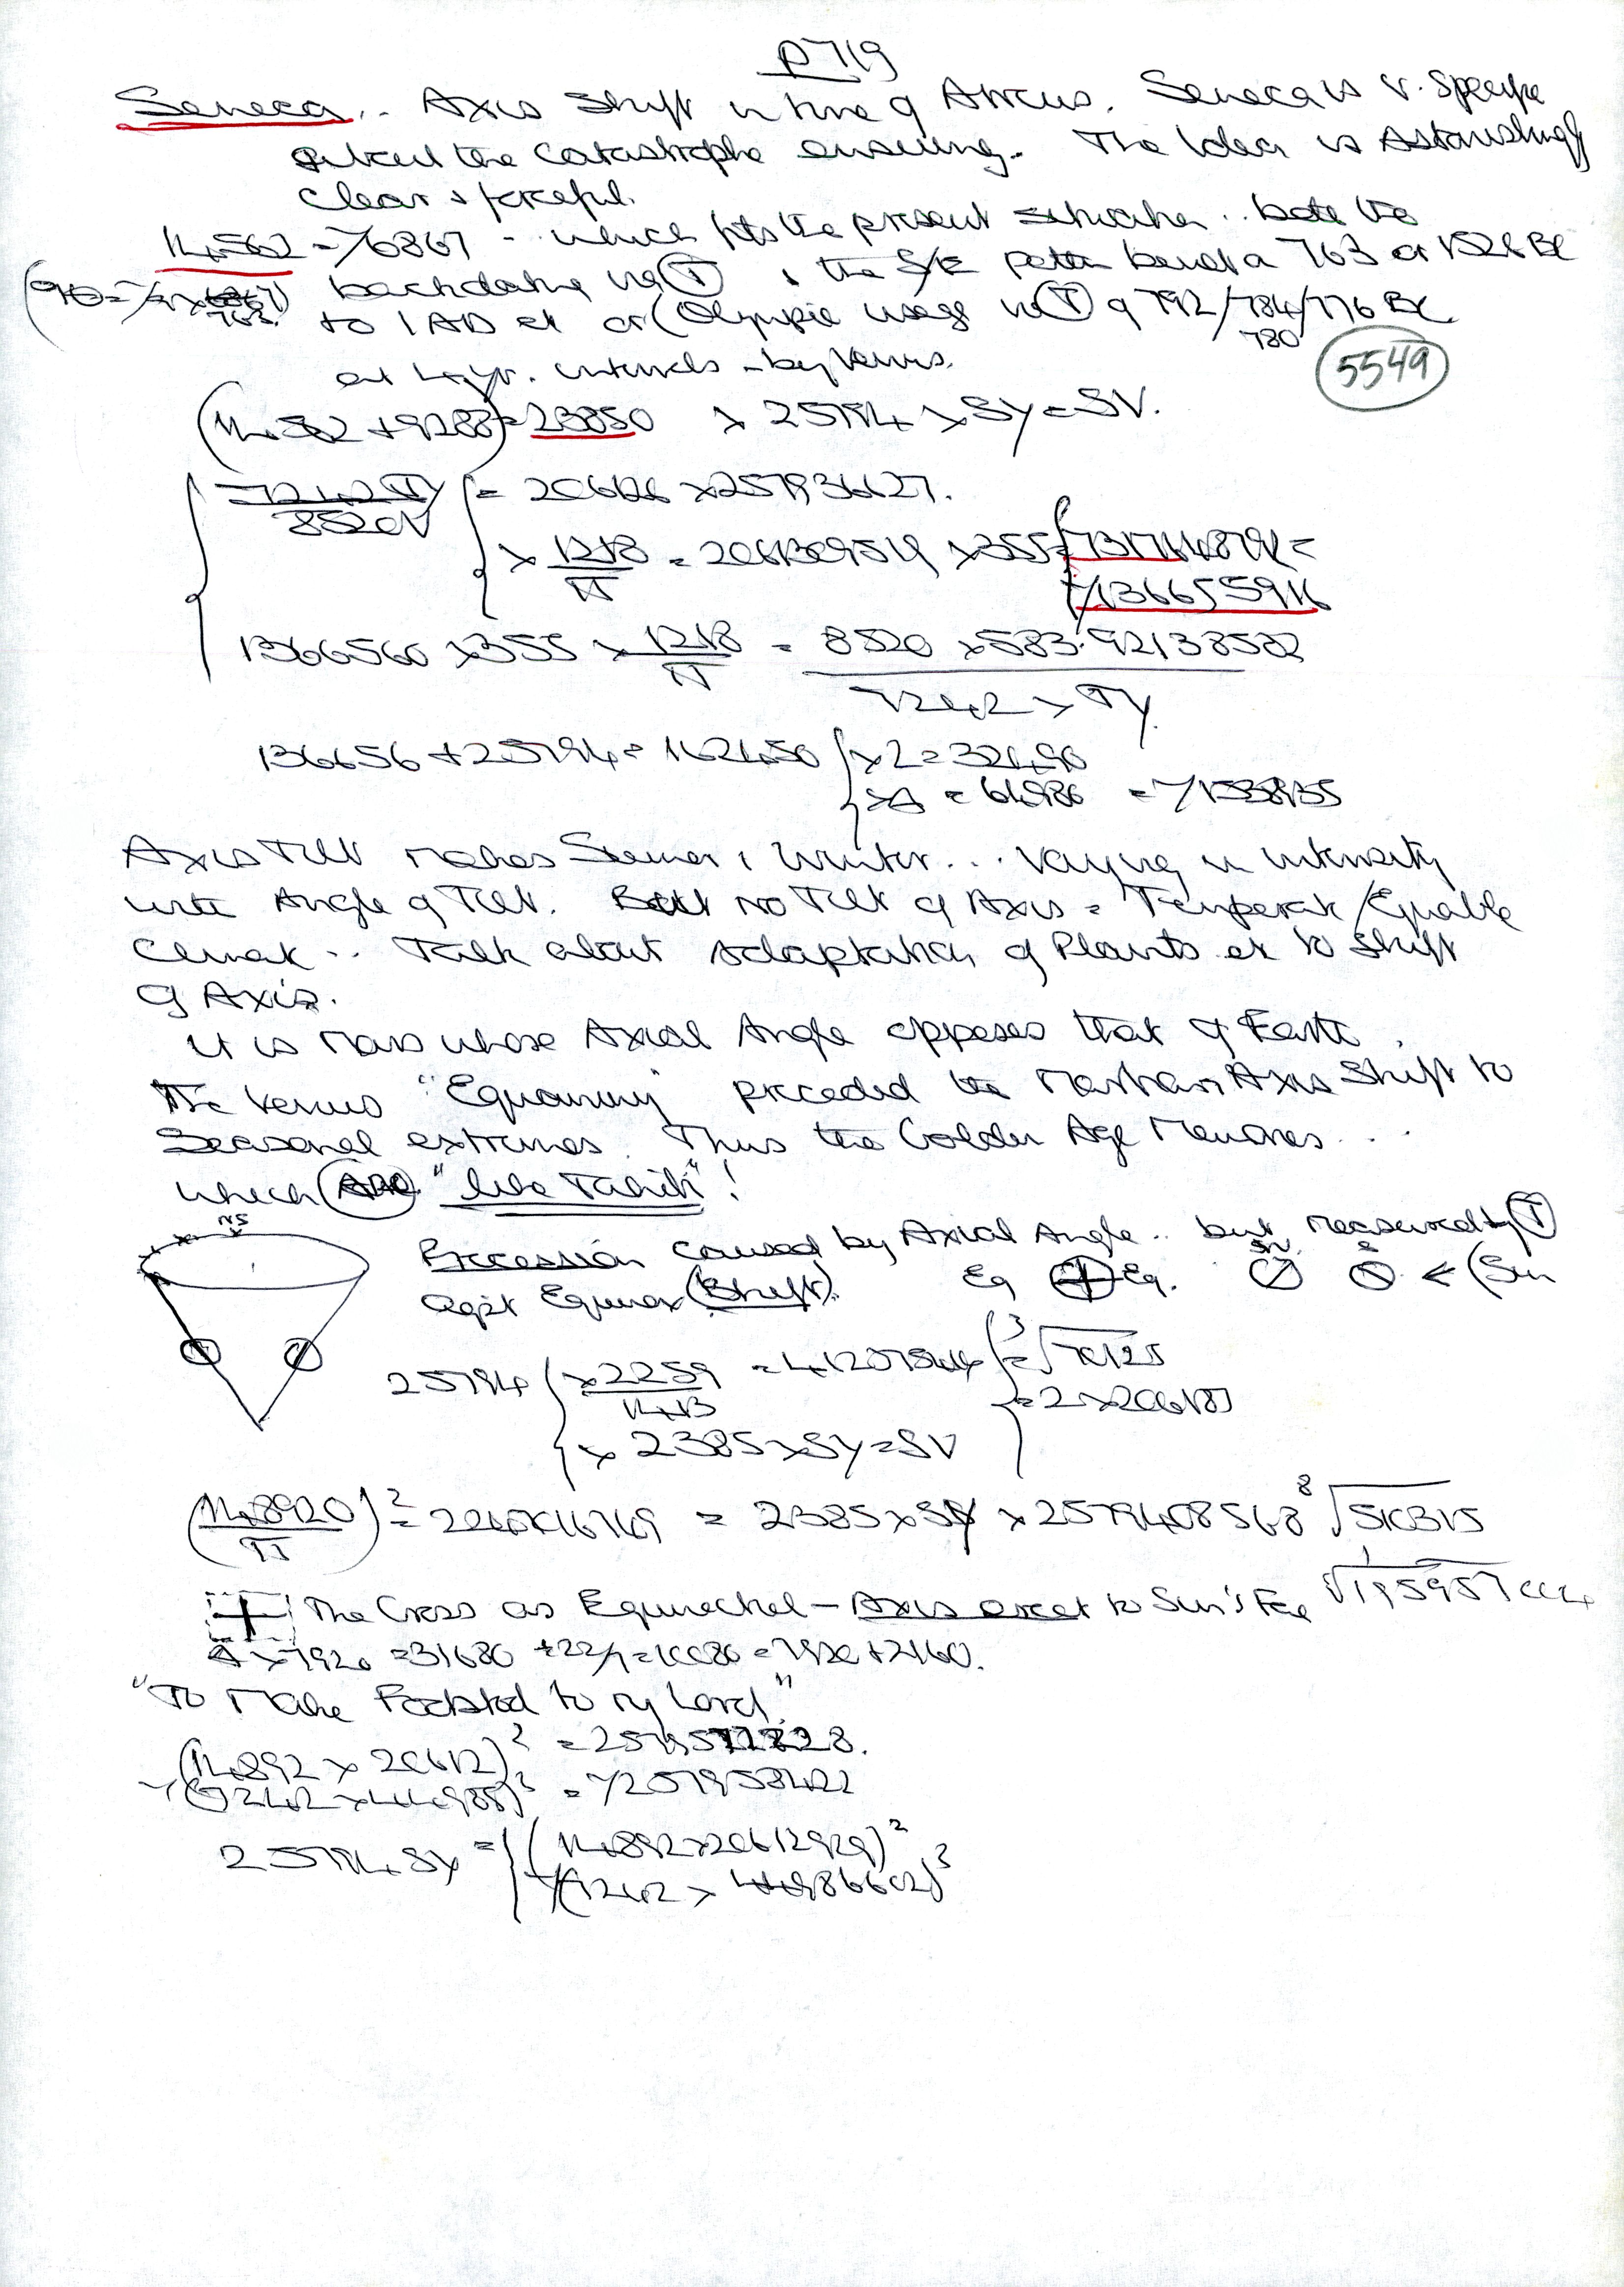 P719
Seneca.. Axis Shift in time of Atreus. Seneca is v. specific
about the catastrophe ensuing. The Idea is Astonishingly
clear & forceful.
14562 = 76867 - which fits the present situation.. both the
backdating via T & the S/E pattern based on 763 or 1526 BC
to 1 AD et or (Olympic usage via T of 792/784/776 BC
780
at 4 yr. intervals - by Venus.
5549
(14562 + 9288) = 23850 x 25794 x SY = SV.
= 7242 TY = 206126 x 257936627.
8520V
x 1218 = 206130951 x 355 = 7317648791 =
π
/136655916
1366560 x 355 x 1218 = 8520 x 583.92138582
π 7242 x TY
136656 + 25794 = 162450 x 2 = 32490
= 64980 = /1538935
Axis Tilt makes Summer & Winter... varying in intensity
with Angle of Tilt. But No Tilt of Axis = Temperate/Equable
Climate.. Talk about Adaptation of Plants et to shift
of Axis.
It is Mars whose Axial Angle opposes that of Earth.
The Venus "Equanimity" preceded the Martian Axis Shift to
Seasonal extremes. Thus the Golden Age Memories...
which "like Tahiti"!
NS
Precession caused by Axial Angle.. but measured by T
against Equinox (Shift). Eq Eq. < (Sun
25794 x 2259 = 412078 = ³√70125
1413 = 2 x 206189
x 2385 x SY = SV
(148920)² = 2246 = 2385 x SY x 2579408568 ⁸√510315
π
The Cross as Equinoctial - Axis erect to Sun's Face
4 x 7920 = 31680 ÷ 22/7 = 10080 = 7920 + 2160.
"To Make Footstool to my Lord"
(14892 x 20612)² =
(7242 x 44988)³ = /257958422
25794 SY = (14892 x 20612929)²
/(7242 x 44986602)³